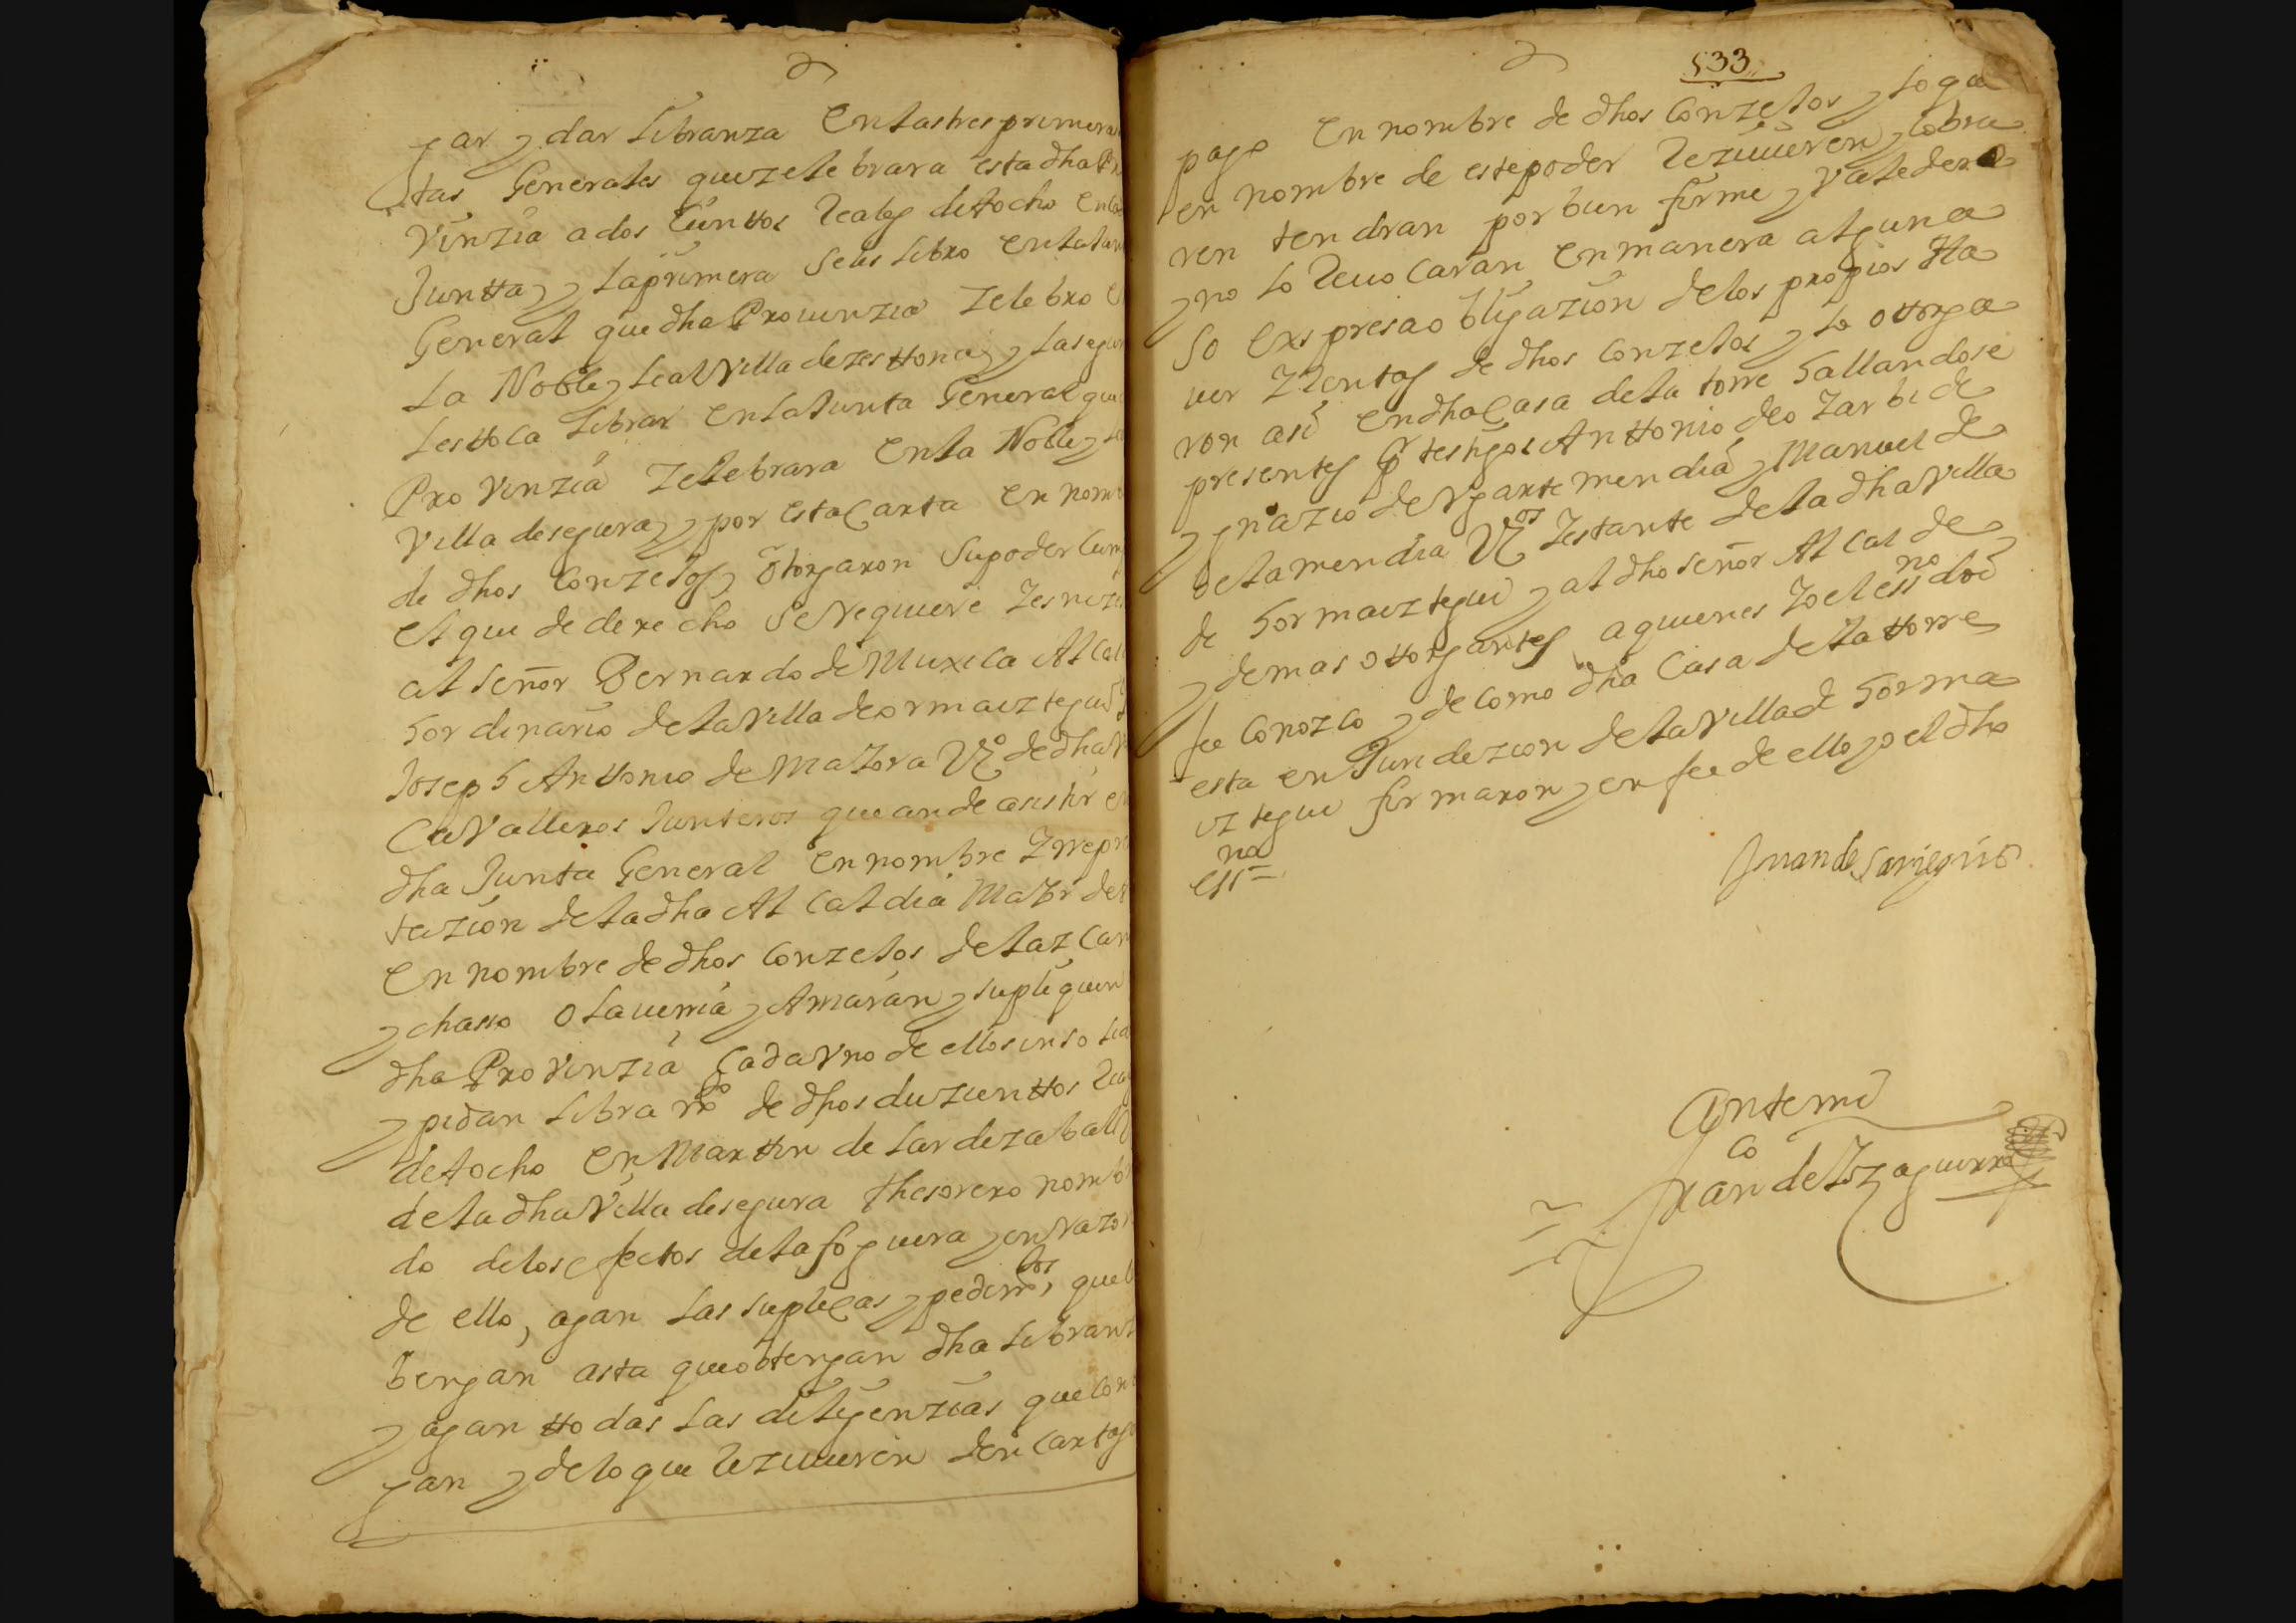 gar y dar libranza en las tres primeras
tas Generales que zelebrara esta dha Pr
Vinzia a dos zienttos Reales de ttocho en cad
Juntta, y la primera se les libro en la Jun
General que dha Prouinzia zelebro en
la Noble y leal Villa de zesttona, y la segun
les ttoca librar en la Junta General que
Provinzia zelebrara en la Noble y le
Villa de segura, y por esta Carta en nom
de dhos Conzejos, otorgaron su poder Cum
el que de derecho se requiere y es nezes
al señor Bernardo de Muxica Alcal
hordinario de la Villa de ormaiztegui y
Joseph Anttonio de Mayora Vº de dha V
Cavalleros Junteros que an de asistir en
dha Junta General en nombre y rrepre
tazion de la dha Alcaldia Mayor de
en nombre de dhos conzejos de lazcan
y chasso olauerria y Amaran y supliquen
dha Provinzia Cada Vno de ellos insoli
y pidan librarto de dhos duzienttos Rea
de ttocho en Marttin de lardezaball
de la dha Villa de segura thesorero nombr
do de los efectos de la foguera y en razo
de ello, agan las suplicas y pedimtos, que
bengan asta que obtengan dha libranz
y agan ttodas las diligenzias que con
gan y de lo que rezuieren den Cartas
533
pago en nombre de dhos conzejos y lo que
en nombre de este poder rezuieren y cobra
ren tendran por bien firme y valedero
y no lo reuocaran en manera alguna
so expresa obligazion de los propios ha
uer y rentas de dhos conzejos y lo ottorga
ron asi en dha Casa de la torre hallandose
presentes por testigos Anttonio de oyarbide
ygnazio de Vgartemendia y Manuel de
olamendia Vos y estante de la dha Villa
de hormaiztegui y al dho señor Alcalde
y demas ottorgantes a quienes yo el essno doi
fee conozco y de como dha Casa de la ttorre
esta en Juridizion de la Villa de horma
iztegui firmaron y en fee de ello yo el dho
essno =
Juan de Sarriegui
Ante mi
Franco de Yzaguirre